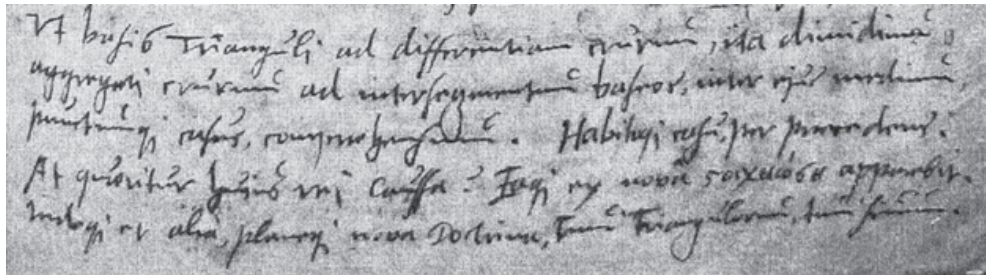 Ut basis Trianguli ad differentiam crurum, ita dimidium
aggregati crurum ad intersegmentum baseos, inter ejus medium,
punctumqi casus, comprehensum. Habitoqi casu, per praecedens.
At quaeritur hujus rei Caussa? Eaqi ex nova apparebit.
Indeqi et alia, planeqi nova Doctrina, tum Triangulorum, tum